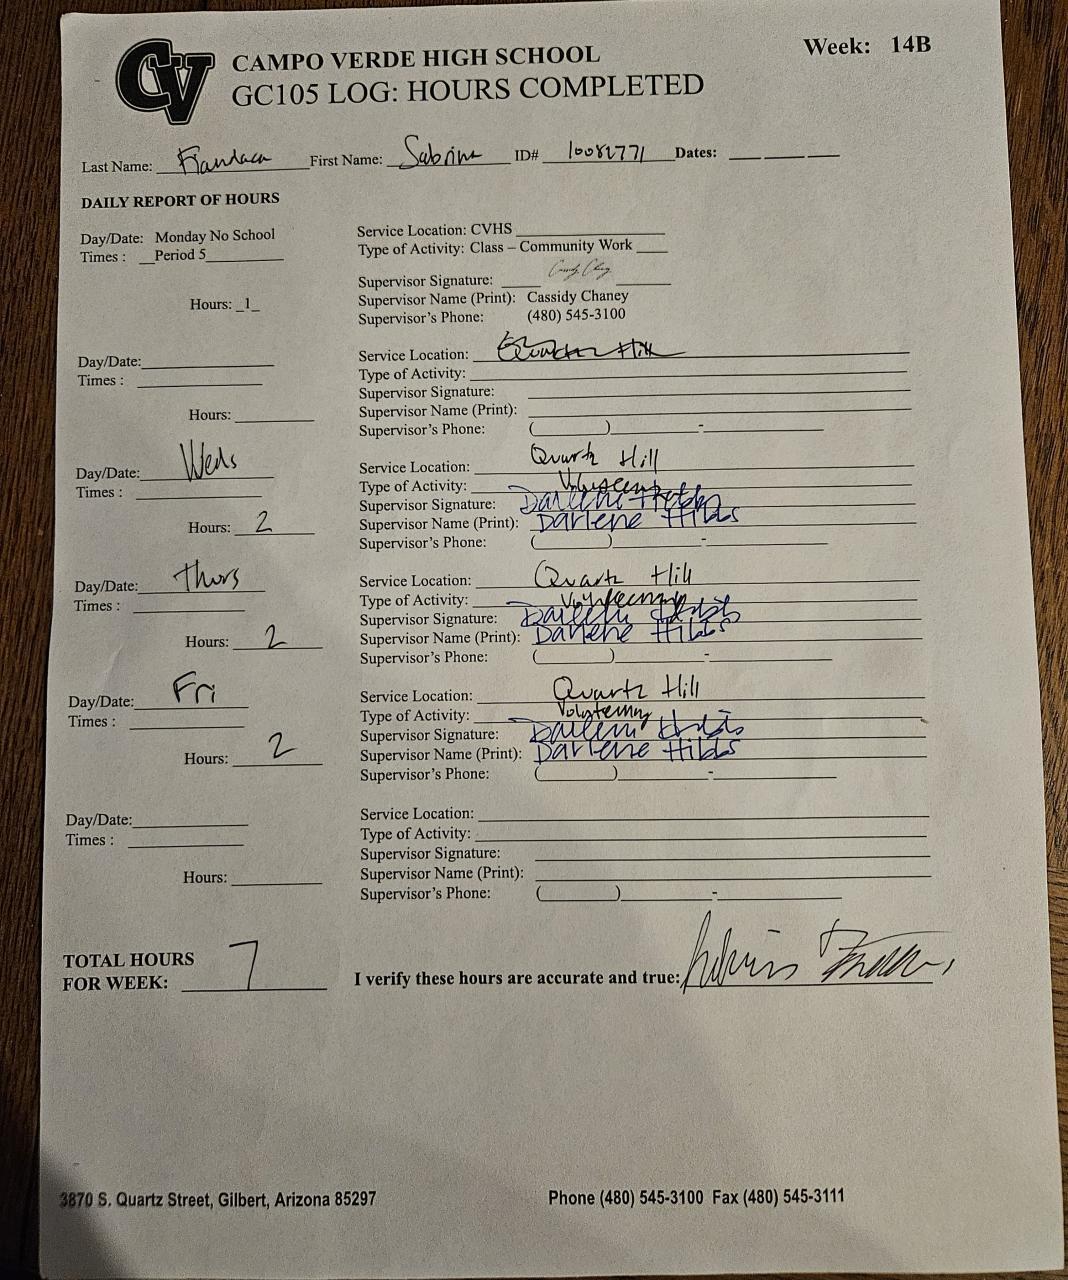 CV
CAMPO VERDE HIGH SCHOOL
Week: 14B
GC105 LOG: HOURS COMPLETED
Last Name: First Name: Sabrina ID# 10082771 Dates:
DAILY REPORT OF HOURS
Day/Date: Monday No School
Times : Period 5
Hours: 1
Service Location: CVHS
Type of Activity: Class – Community Work
Supervisor Signature:
Supervisor Name (Print): Cassidy Chaney
Supervisor's Phone: (480) 545-3100
Day/Date:
Times :
Hours:
Service Location: Quartz Hill
Type of Activity:
Supervisor Signature:
Supervisor Name (Print):
Supervisor's Phone: ( ) -
Day/Date: Weds
Times :
Hours: 2
Service Location: Quartz Hill
Type of Activity:
Supervisor Signature: Darlene Hibbs
Supervisor Name (Print): Darlene Hibbs
Supervisor's Phone: ( ) -
Day/Date: Thurs
Times :
Hours: 2
Service Location: Quartz Hill
Type of Activity: Volunteering
Supervisor Signature: Darlene Hibbs
Supervisor Name (Print): Darlene Hibbs
Supervisor's Phone: ( ) -
Day/Date: Fri
Times :
Hours: 2
Service Location: Quartz Hill
Type of Activity: Volunteering
Supervisor Signature: Darlene Hibbs
Supervisor Name (Print): Darlene Hibbs
Supervisor's Phone: ( ) -
Day/Date:
Times :
Hours:
Service Location:
Type of Activity:
Supervisor Signature:
Supervisor Name (Print):
Supervisor's Phone: ( ) -
TOTAL HOURS
FOR WEEK: 7
I verify these hours are accurate and true:
3870 S. Quartz Street, Gilbert, Arizona 85297
Phone (480) 545-3100 Fax (480) 545-3111